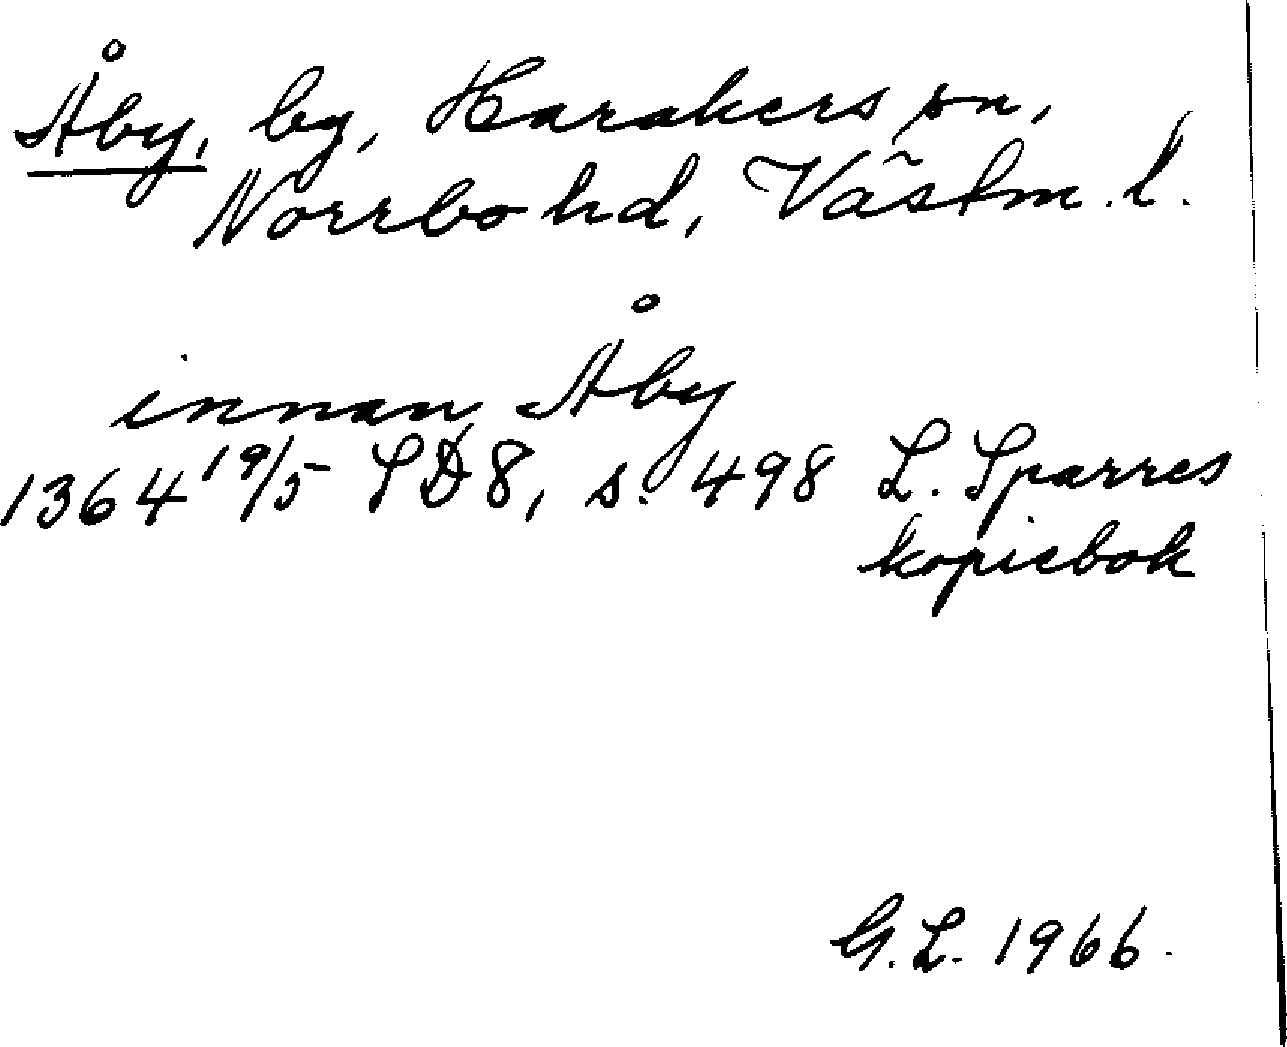 Åby, by, Harakers sn,
Norrbo hd, Västm. l.
innan Åby
1364 19/5 SD8, s. 498 L. Sparres
kopiebok
G.L. 1966.